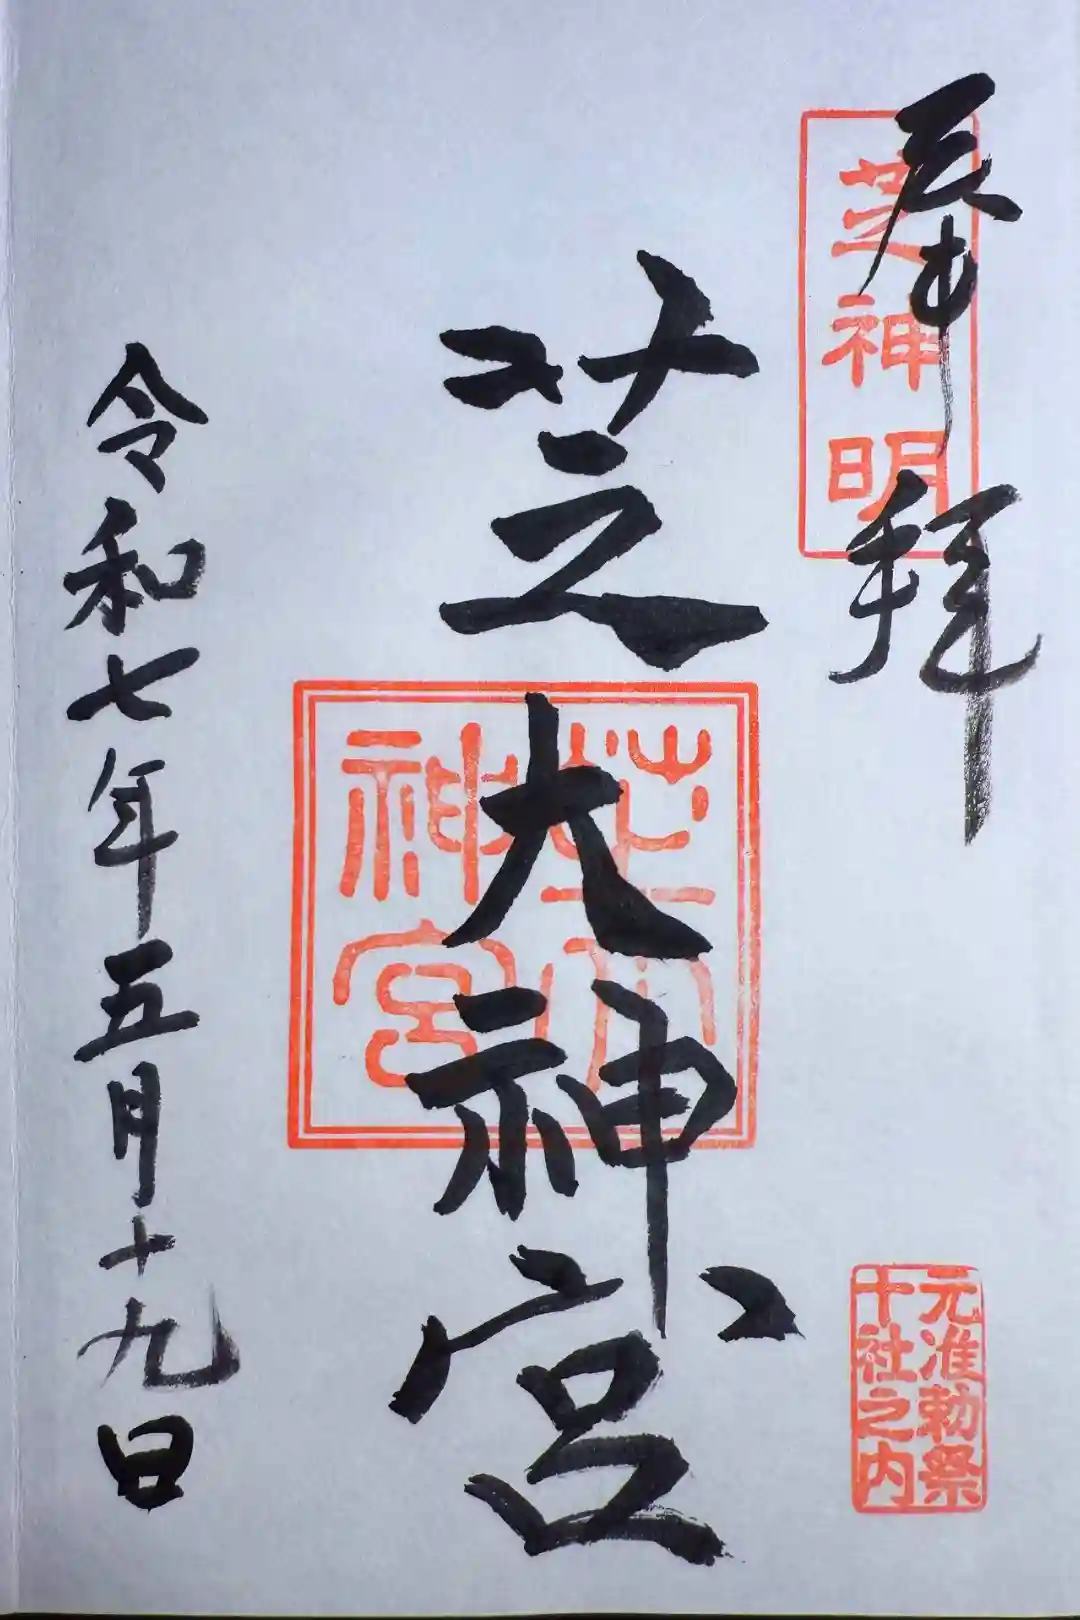 奉拝
芝神明
芝大神宮
芝大神宮
元准勅祭
十社之内
令和七年五月十九日